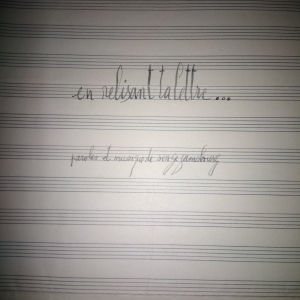 en relisant ta lettre...
paroles et musique de serge gainsbourg